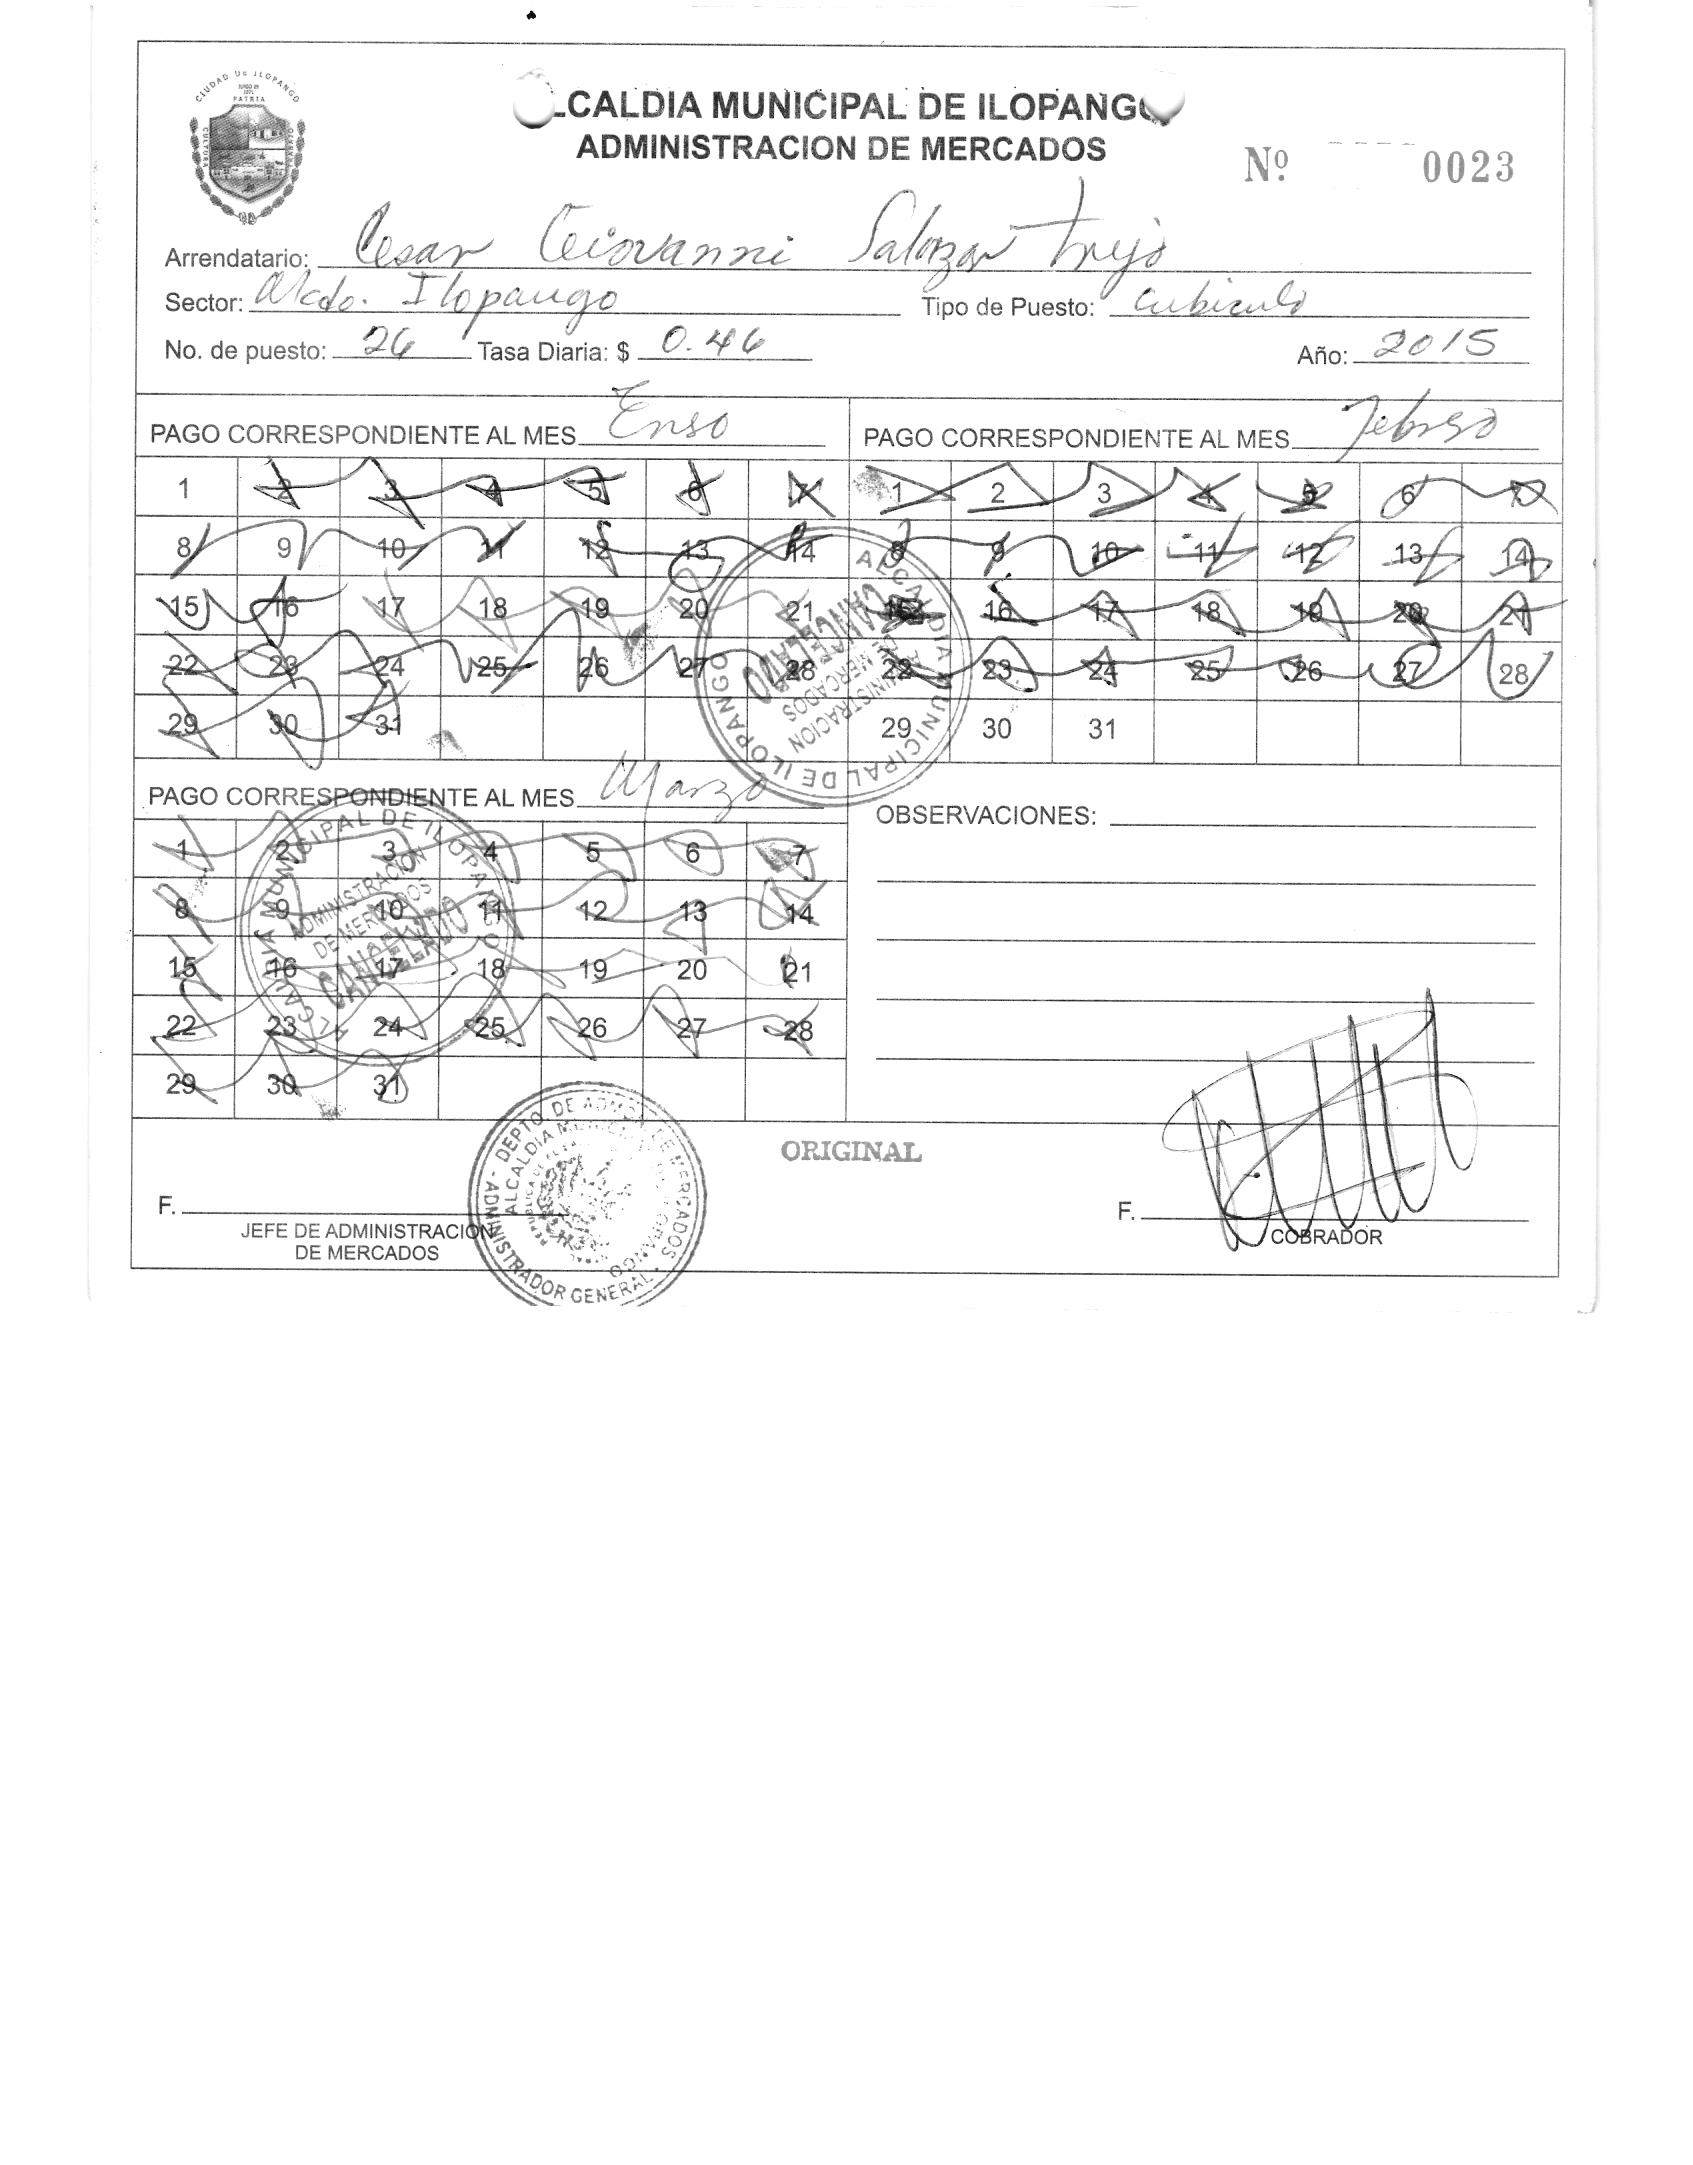 CIUDAD DE ILOPANGO
PATRIA
CULTURA
TRABAJO
LCALDIA MUNICIPAL DE ILOPANGO
ADMINISTRACION DE MERCADOS
Nº 0023
Arrendatario: Cesar Geovanni Salazar Trejo
Sector: Mcdo. Ilopango Tipo de Puesto: Cubiculo
No. de puesto: 26 Tasa Diaria: $ 0.46 Año: 2015
PAGO CORRESPONDIENTE AL MES Enero
1 2 3 4 5 6 7
8 9 10 11 12 13 14
15 16 17 18 19 20 21
22 23 24 25 26 27 28
29 30 31
PAGO CORRESPONDIENTE AL MES Febrero
1 2 3 4 5 6 7
8 9 10 11 12 13 14
15 16 17 18 19 20 21
22 23 24 25 26 27 28
29 30 31
ALCALDIA MUNICIPAL DE ILOPANGO
ADMINISTRACION
DE MERCADOS
CANCELADO
PAGO CORRESPONDIENTE AL MES Marzo
1 2 3 4 5 6 7
8 9 10 11 12 13 14
15 16 17 18 19 20 21
22 23 24 25 26 27 28
29 30 31
ALCALDIA MUNICIPAL DE ILOPANGO
ADMINISTRACION
DE MERCADOS
CANCELADO
OBSERVACIONES:
ORIGINAL
F.
JEFE DE ADMINISTRACION
DE MERCADOS
DEPTO. DE ADMON. DE MERCADOS
ADMINISTRADOR GENERAL
F.
COBRADOR